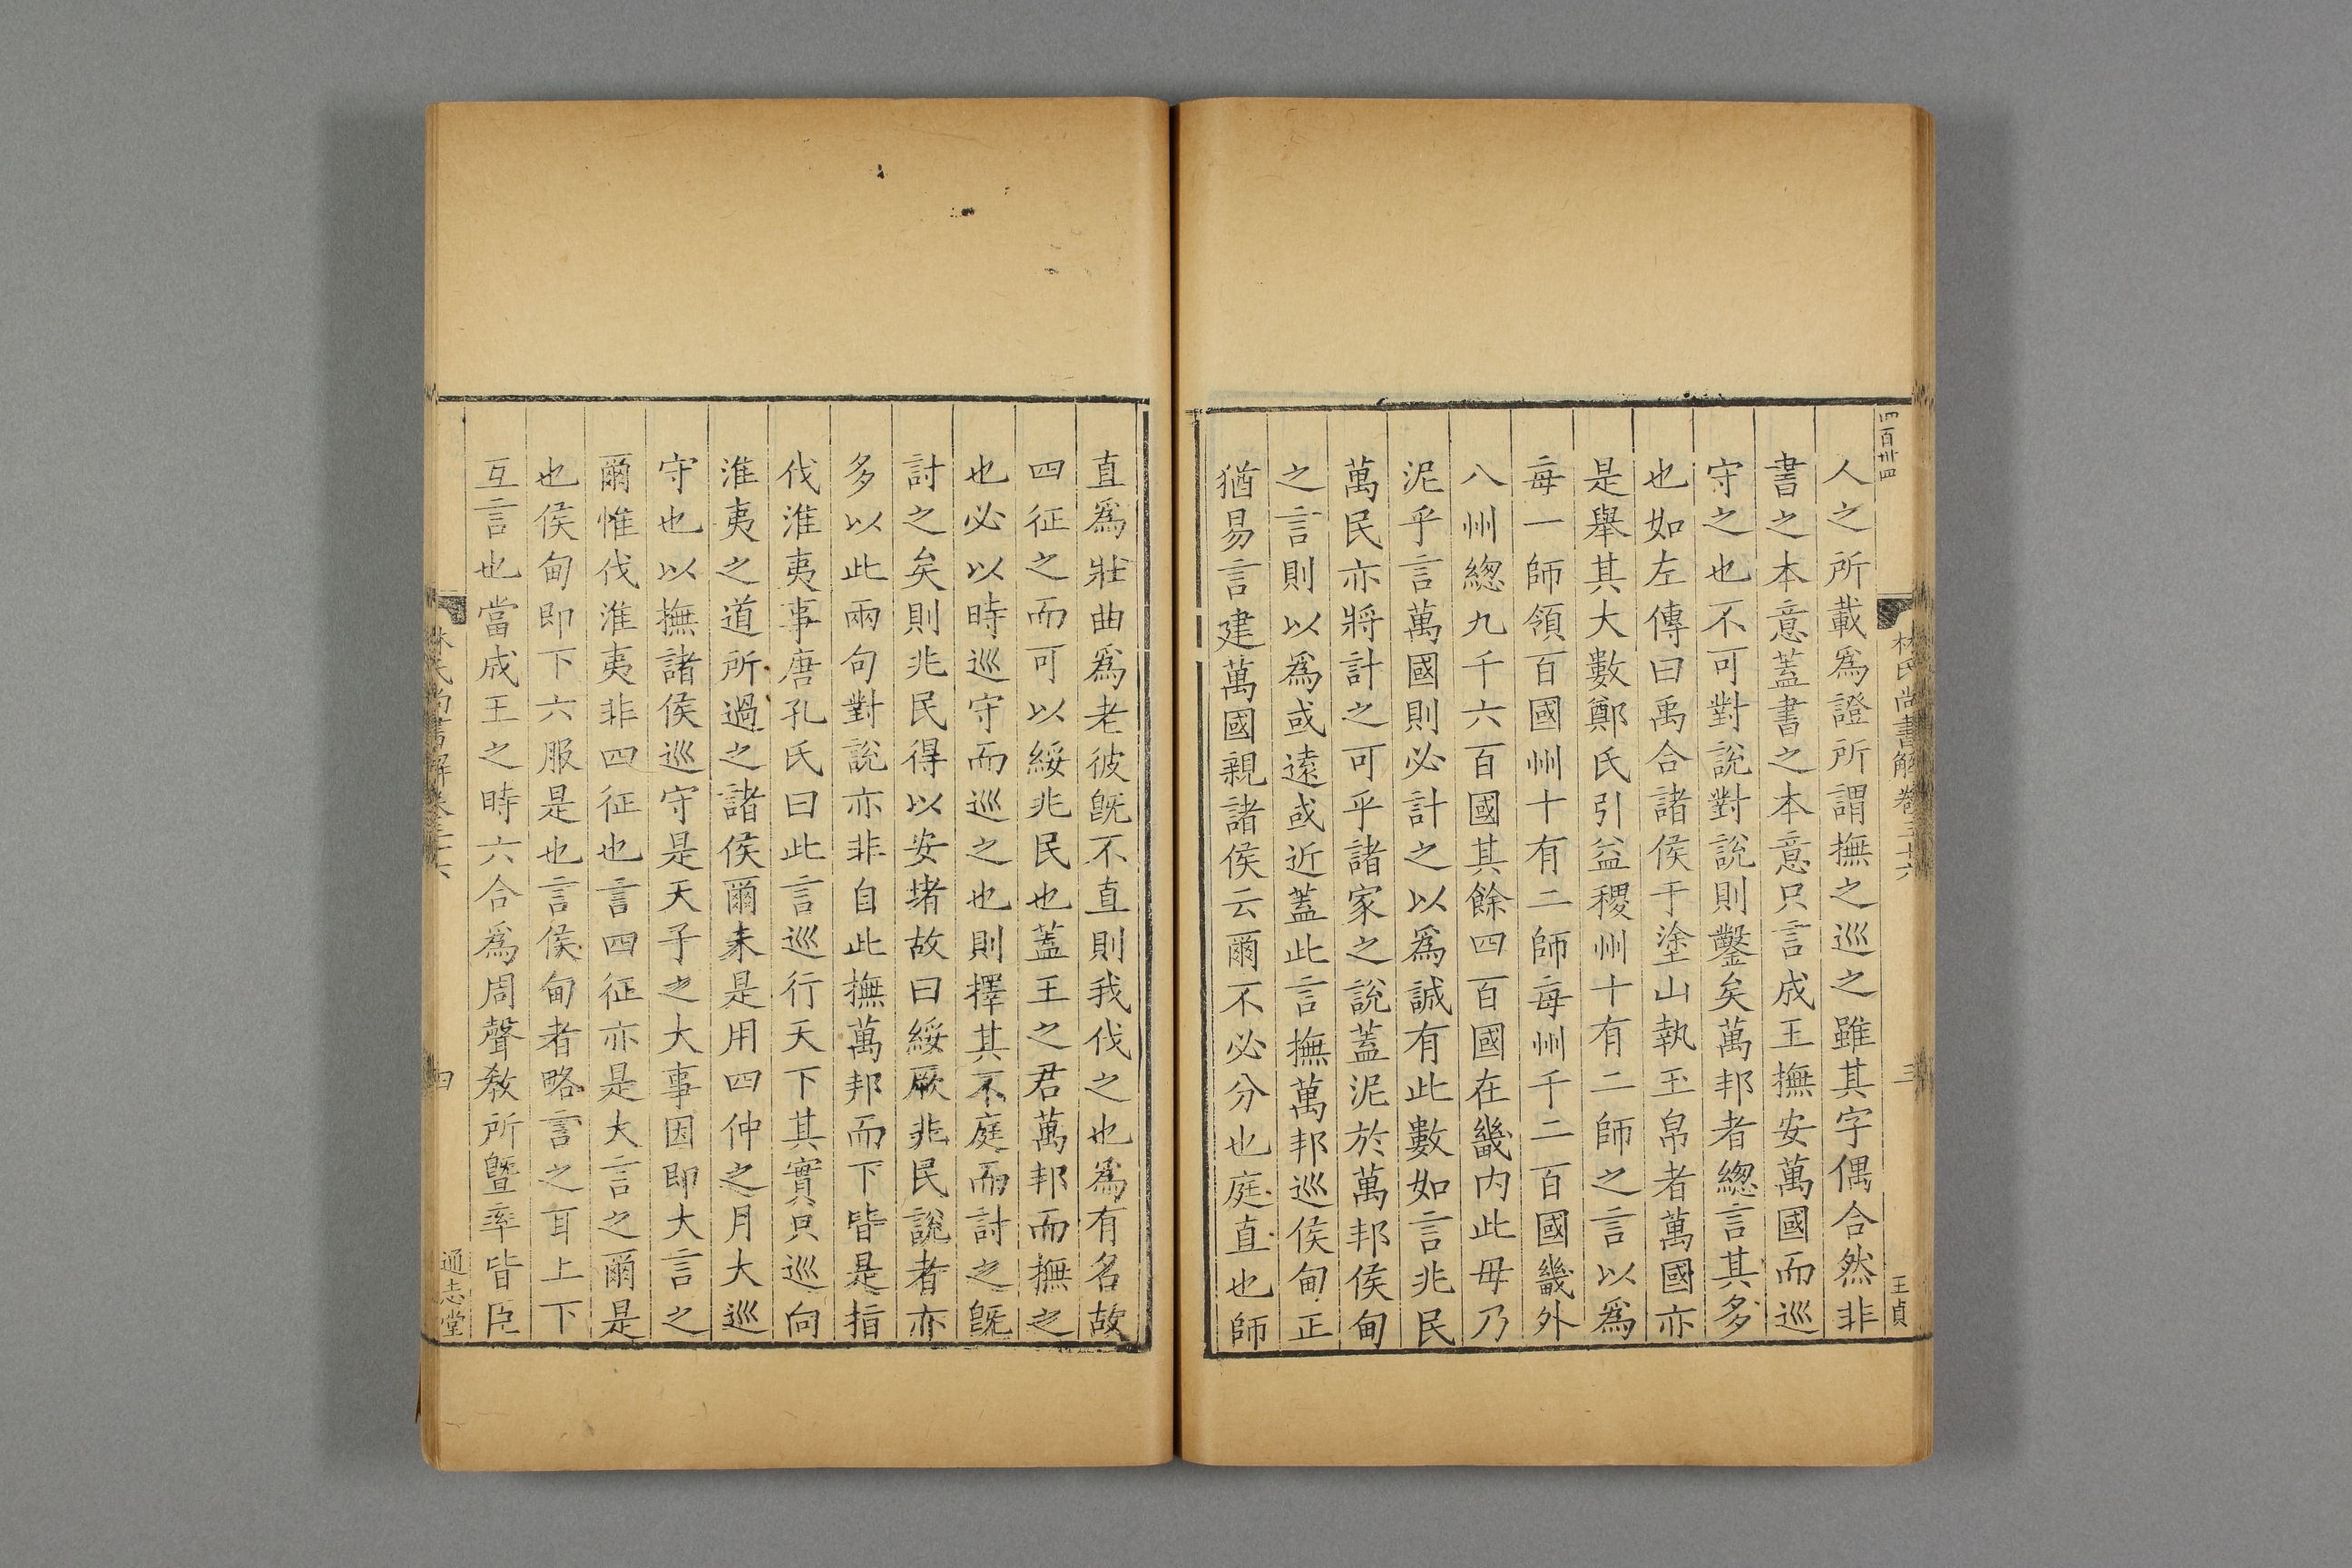 林氏尚書解卷三十六
三
王貞
人之所載爲證所謂撫之巡之雖其字偶合然非
書之本意蓋書之本意只言成王撫安萬國而巡
守之也不可對說對說則鑿矣萬邦者總言其多
也如左傳曰禹合諸侯于塗山執玉帛者萬國亦
是舉其大數鄭氏引益稷州十有二師之言以爲
每一師領百國州十有二師每州千二百國畿外
八州總九千六百國其餘四百國在畿內此毋乃
泥乎言萬國則必計之以爲誠有此數如言兆民
萬民亦將計之可乎諸家之說蓋泥於萬邦侯甸
之言則以爲或遠或近蓋此言撫萬邦巡侯甸正
猶易言建萬國親諸侯云爾不必分也庭直也師
直爲壯曲爲老彼旣不直則我伐之也爲有名故
四征之而可以綏兆民也蓋王之君萬邦而撫之
也必以時巡守而巡之也則擇其不庭而討之旣
討之矣則兆民得以安堵故曰綏厥兆民說者亦
多以此兩句對說亦非自此撫萬邦而下皆是指
伐淮夷事唐孔氏曰此言巡行天下其實只巡向
淮夷之道所過之諸侯爾未是用四仲之月大巡
守也以撫諸侯巡守是天子之大事因即大言之
爾惟伐淮夷非四征也言四征亦是大言之爾是
也侯甸即下六服是也言侯甸者略言之耳上下
互言也當成王之時六合爲周聲敎所曁率皆臣
林氏尚書解卷三十六
四
通志堂